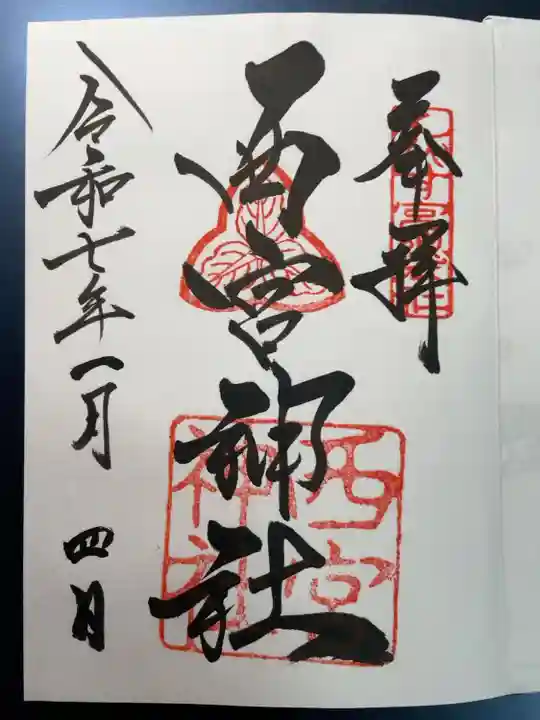 奉拝
西宮神社
西宮神社
令和七年一月四日